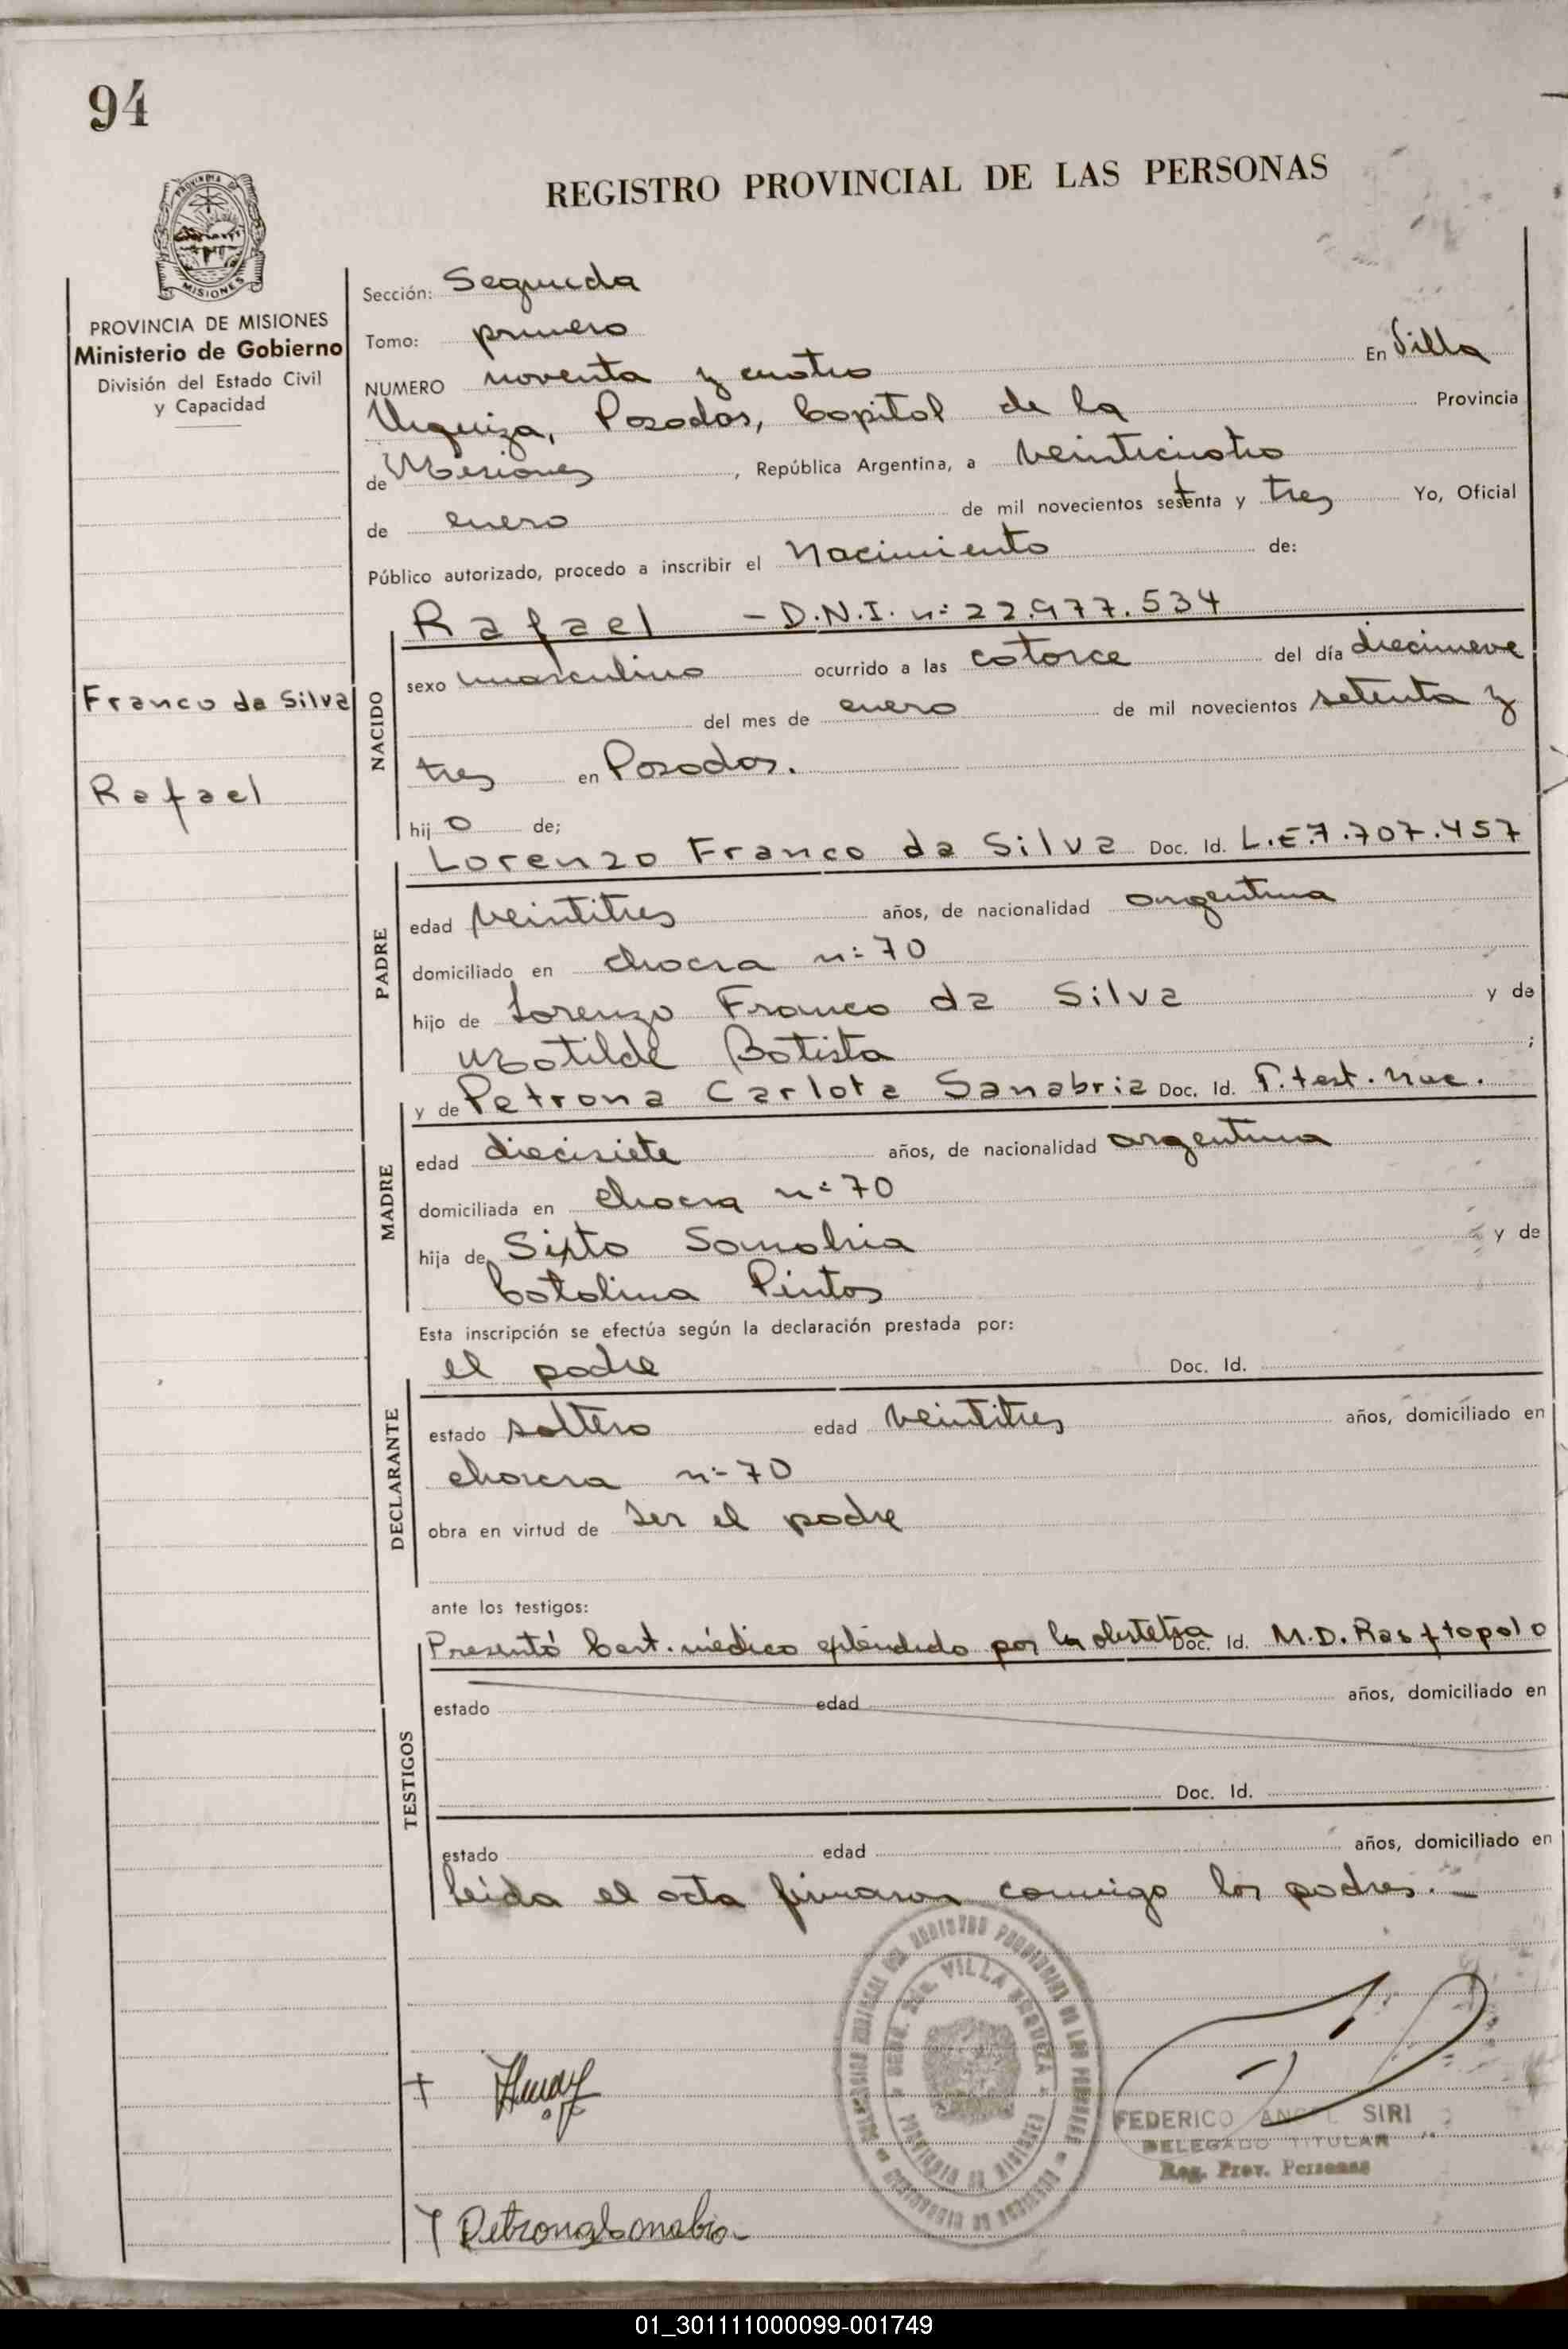 94
REGISTRO PROVINCIAL DE LAS PERSONAS
PROVINCIA DE
MISIONES
PROVINCIA DE MISIONES
Ministerio de Gobierno
División del Estado Civil
y Capacidad
Franco da Silva
Rafael
Sección: Segunda
Tomo: primero
NUMERO noventa y cuatro En Villa
Urquiza, Posadas, Capital de la Provincia
de Misiones, República Argentina, a veinticuatro
de enero de mil novecientos setenta y tres Yo, Oficial
Público autorizado, procedo a inscribir el Nacimiento de:
NACIDO
Rafael - D.N.I. nº 22.977.534
sexo masculino ocurrido a las catorce del día diecinueve
del mes de enero de mil novecientos setenta y
tres en Posadas.
hij o de;
PADRE
Lorenzo Franco da Silva Doc. Id. L.E.7.707.457
edad veintitres años, de nacionalidad argentina
domiciliado en chacra nº 70
hijo de Lorenzo Franco da Silva y de
Matilde Batista ;
MADRE
y de Petrona Carlota Sanabria Doc. Id. P. test. nac.
edad diecisiete años, de nacionalidad argentina
domiciliada en chacra nº 70
hija de Sixto Sanabria y de
Catalina Pintos
Esta inscripción se efectúa según la declaración prestada por:
DECLARANTE
el padre Doc. Id.
estado soltero edad veintitres años, domiciliado en
chacra nº 70
obra en virtud de ser el padre
ante los testigos:
TESTIGOS
Presentó Cert. médico por la obstetra Doc. Id. M.D.
estado edad años, domiciliado en
Doc. Id.
estado edad años, domiciliado en
Leida el acta firmaron conmigo los padres.-
VILLA URQUIZA
PROVINCIA DE MISIONES
FEDERICO ANGEL SIRI
DELEGADO TITULAR
Reg. Prov. Personas
Petrona Sanabria
01_301111000099-001749